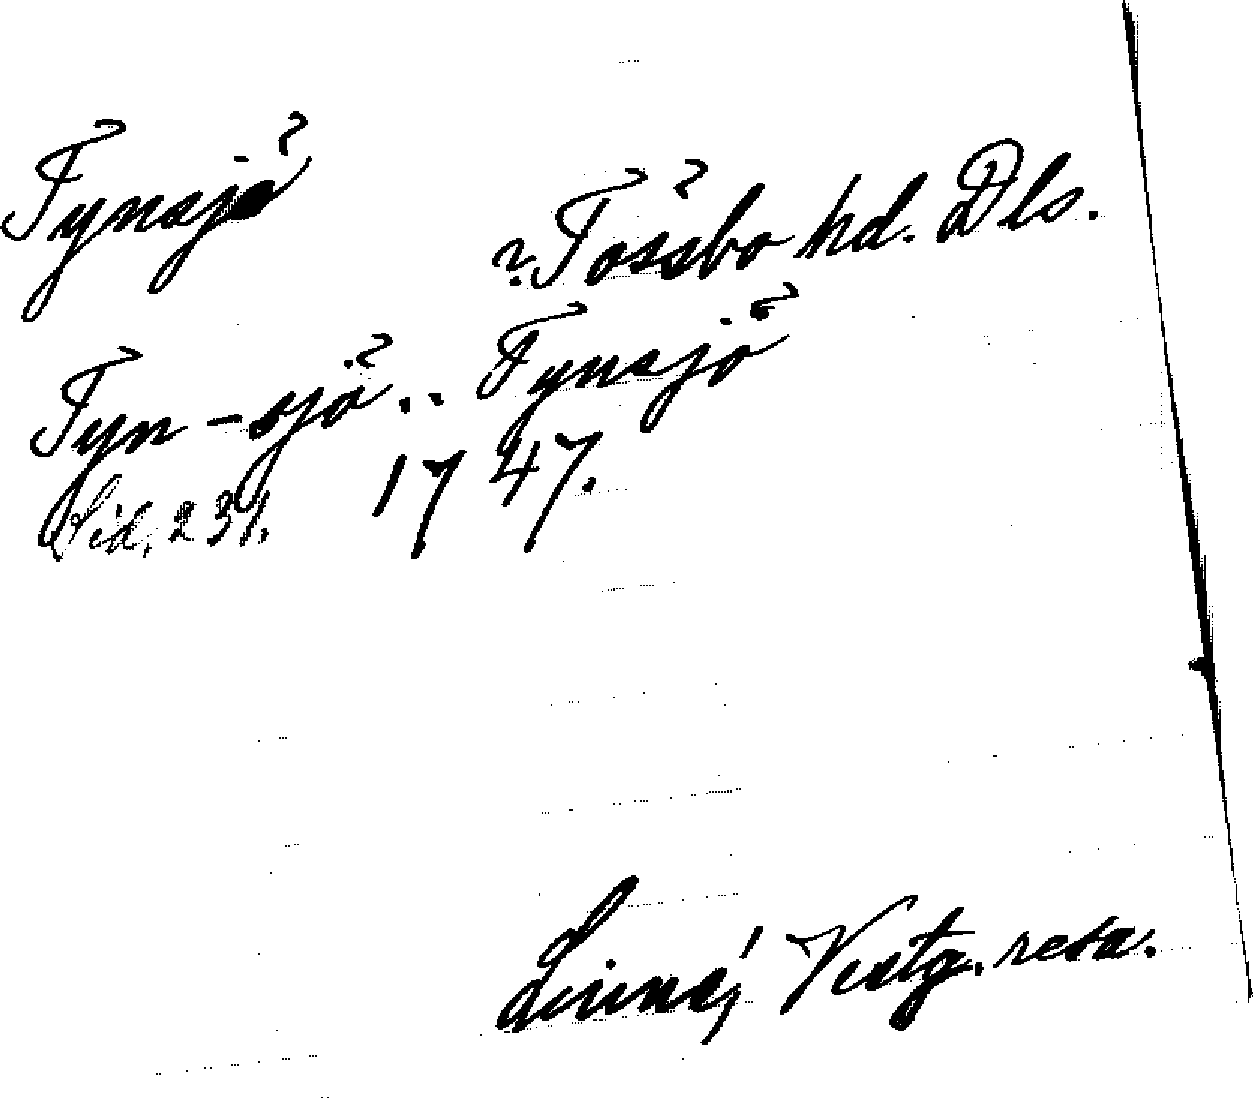 Tynsjö?
?Tössbo hd. Dls.
Tyn-sjö?.. Tynsjö
Sid. 231. 1747.
Linné, Vestg. resa.